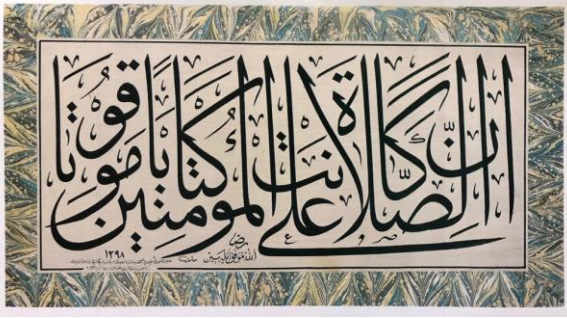 اِنَّ الصَّلاة كانت على المؤمنين كتابا موقوتا
١٣٩٨